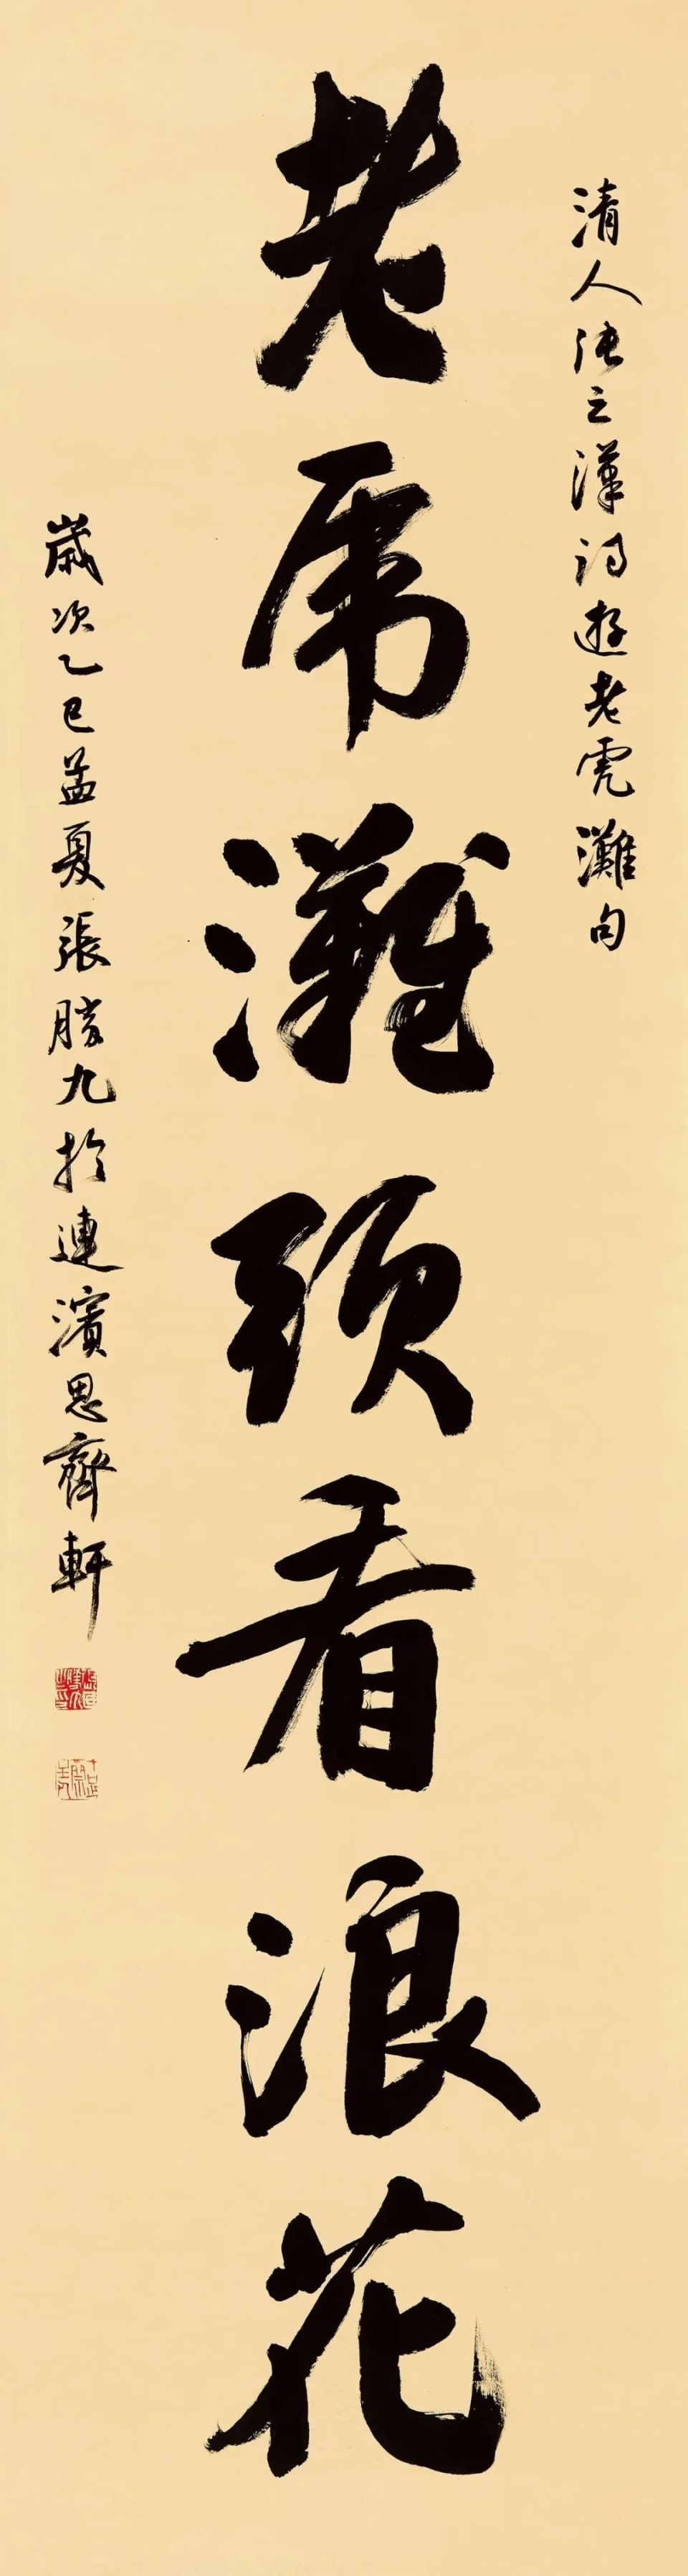 清人張之漢詩遊老虎灘句
老虎灘頭看浪花
歲次乙巳孟夏張勝九於連濱思齊軒